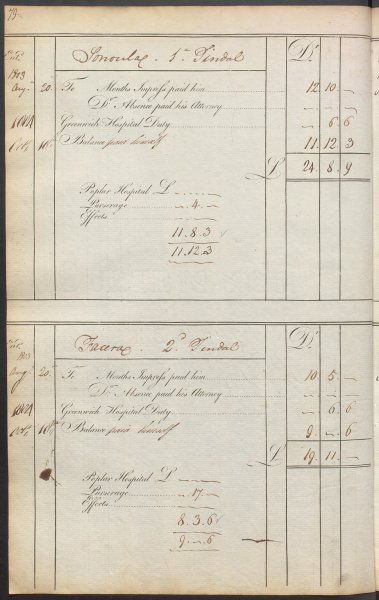 79
Sonoulac . 1st Tindal Dr
1803
Augt 20. To Months Imprest paid him 12 10 —
Do Absence paid his Attorney
1804 Greenwich Hospital Duty — 6 6
Octr 10th Balance paid himself 11. 12 3
£ 24. 8. 9
Poplar Hospital £ — — —
Purserage — 4. —
Effects — — —
11. 8. 3
11. 12. 3
2d Tindal Dr
1803
Augt 20. To Months Imprest paid him 10 5. —
Do Absence paid his Attorney
1804 Greenwich Hospital Duty — 6 6
Octr 10th Balance paid himself 9. — 6
£ 19. 11. —
Poplar Hospital £ — — —
Purserage — 17. —
Effects — — —
8. 3. 6
9. — 6